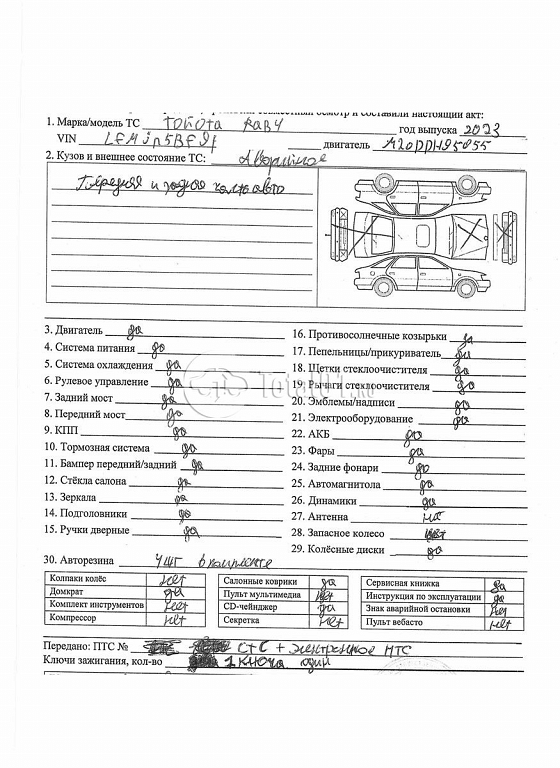 совместный осмотр и составили настоящий акт:
1. Марка/модель ТС Toyota Rav4 год выпуска 2023
VIN двигатель
2. Кузов и внешнее состояние ТС: Аварийное
Передняя и задняя часть авто
3. Двигатель да
4. Система питания да
5. Система охлаждения да
6. Рулевое управление да
7. Задний мост да
8. Передний мост да
9. КПП да
10. Тормозная система да
11. Бампер передний/задний да
12. Стёкла салона да
13. Зеркала да
14. Подголовники да
15. Ручки дверные да
16. Противосолнечные козырьки да
17. Пепельницы/прикуриватель
18. Щетки стеклоочистителя да
19. Рычаги стеклоочистителя да
20. Эмблемы/надписи да
21. Электрооборудование да
22. АКБ да
23. Фары да
24. Задние фонари да
25. Автомагнитола да
26. Динамики да
27. Антенна нет
28. Запасное колесо нет
29. Колёсные диски да
30. Авторезина 4 шт в комплекте
Колпаки колёс нет
Домкрат да
Комплект инструментов нет
Компрессор нет
Салонные коврики да
Пульт мультимедиа нет
CD-чейнджер да
Секретка нет
Сервисная книжка да
Инструкция по эксплуатации да
Знак аварийной остановки нет
Пульт вебасто нет
Передано: ПТС № СТС + электронное ПТС
Ключи зажигания, кол-во 1 ключ один